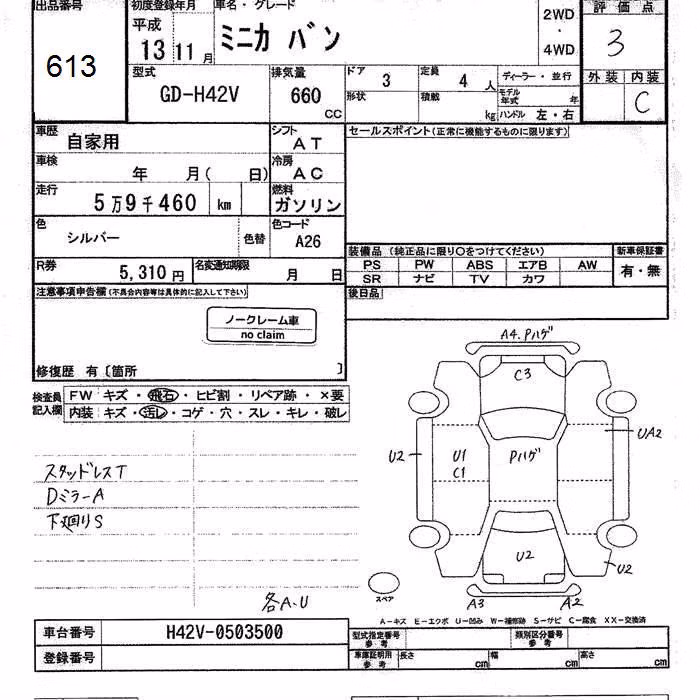 出品番号 初度登録年月 車名・グレード 2WD ・ 4WD 評価点
613 平成 13 11月 ミニカ バン 3
型式 排気量 ドア 3 定員 4人 ディーラー・並行 外装 内装
GD-H42V 660 CC 形状 積載 kg モデル年式 年 ハンドル 左・右 C
車歴 自家用 シフト AT セールスポイント(正常に機能するものに限ります)
車検 年 月( 日) 冷房 AC
走行 5万9千460 km 燃料 ガソリン
色 シルバー 色替 色コード A26 装備品 (純正品に限り○をつけてください) 新車保証書
PS PW ABS エアB AW 有・無
R券 5,310円 名変通知期限 月 日 SR ナビ TV カワ
注意事項申告欄(不具合内容等は具体的に記入して下さい) 後日品
ノークレーム車
no claim
修復歴 有〔箇所 〕
検査員記入欄 FW キズ・飛石・ヒビ割・リペア跡・×要
内装 キズ・汚レ・コゲ・穴・スレ・キレ・破レ
A4.Pハゲ
C3
UA2
U2 U1 Pハゲ
C1
スタッドレスT
DミラーA
下廻りS
U2
U2
スペア
A3 A2
各A.U
A-キズ E-エクボ U-凹み W-補修跡 S-サビ C-腐食 XX-交換済
車台番号 H42V-0503500 型式指定番号 参考 類別区分番号 参考
登録番号 車庫証明用 参考 長さ cm 幅 cm 高さ cm